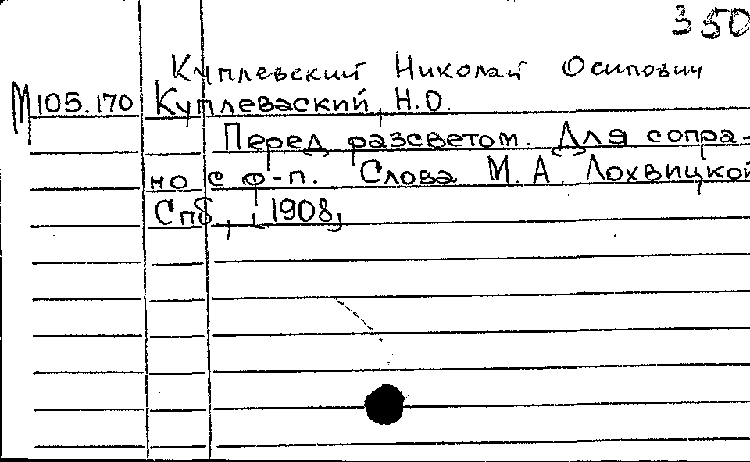 350
Куплевский Николай Осипович
М105.170 Куплеваский, Н.О.
Перед разсветом. Для сопра-
но с ф-п. Слова М.А Лохвицкой
Спб., [1908]